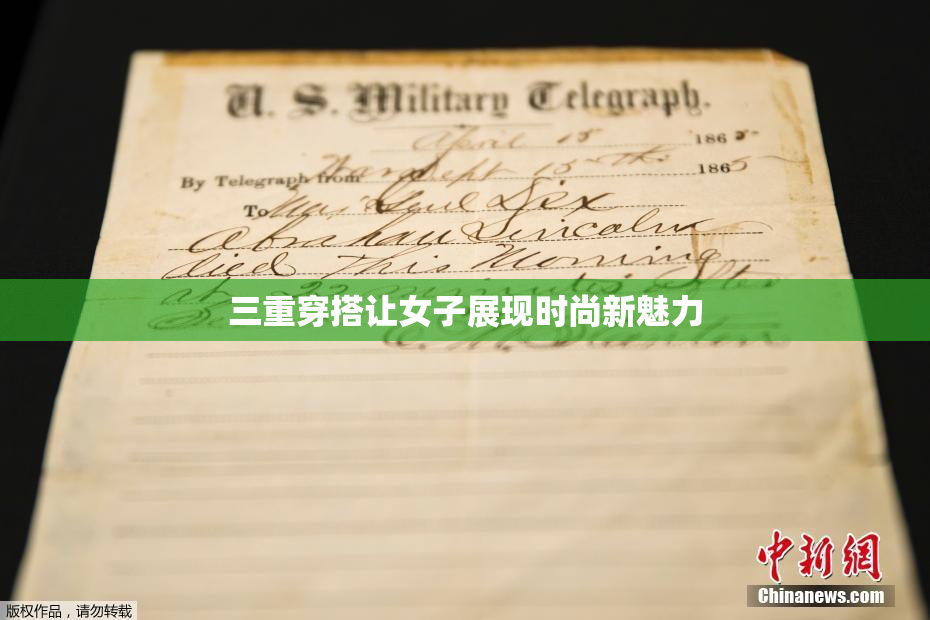 U. S. Military Telegraph.
April 15 1865
By Telegraph from War Dept 15th 1865
To Maj Genl Dix
Abraham Lincoln
died This Morning
at 22 minutes after
三重穿搭让女子展现时尚新魅力
中新网
Chinanews.com
版权作品，请勿转载